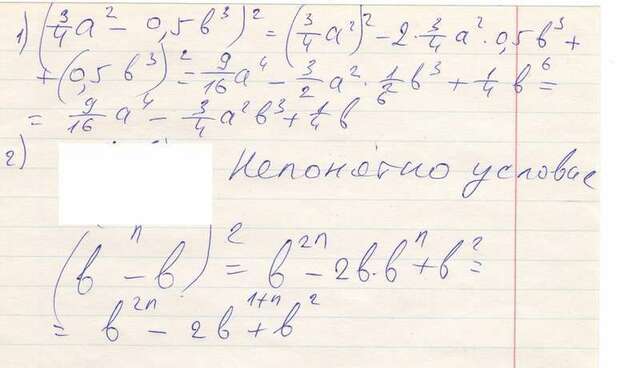 1) (3/4 a² - 0,5 b³)² = (3/4 a²)² - 2 · 3/4 a² · 0,5 b³ +
+ (0,5 b³)² = 9/16 a⁴ - 3/2 a² · 1/2 b³ + 1/4 b⁶ =
= 9/16 a⁴ - 3/4 a² b³ + 1/4 b⁶
2) Непонятно условие
(bⁿ - b)² = b²ⁿ - 2b · bⁿ + b² =
= b²ⁿ - 2b¹⁺ⁿ + b²